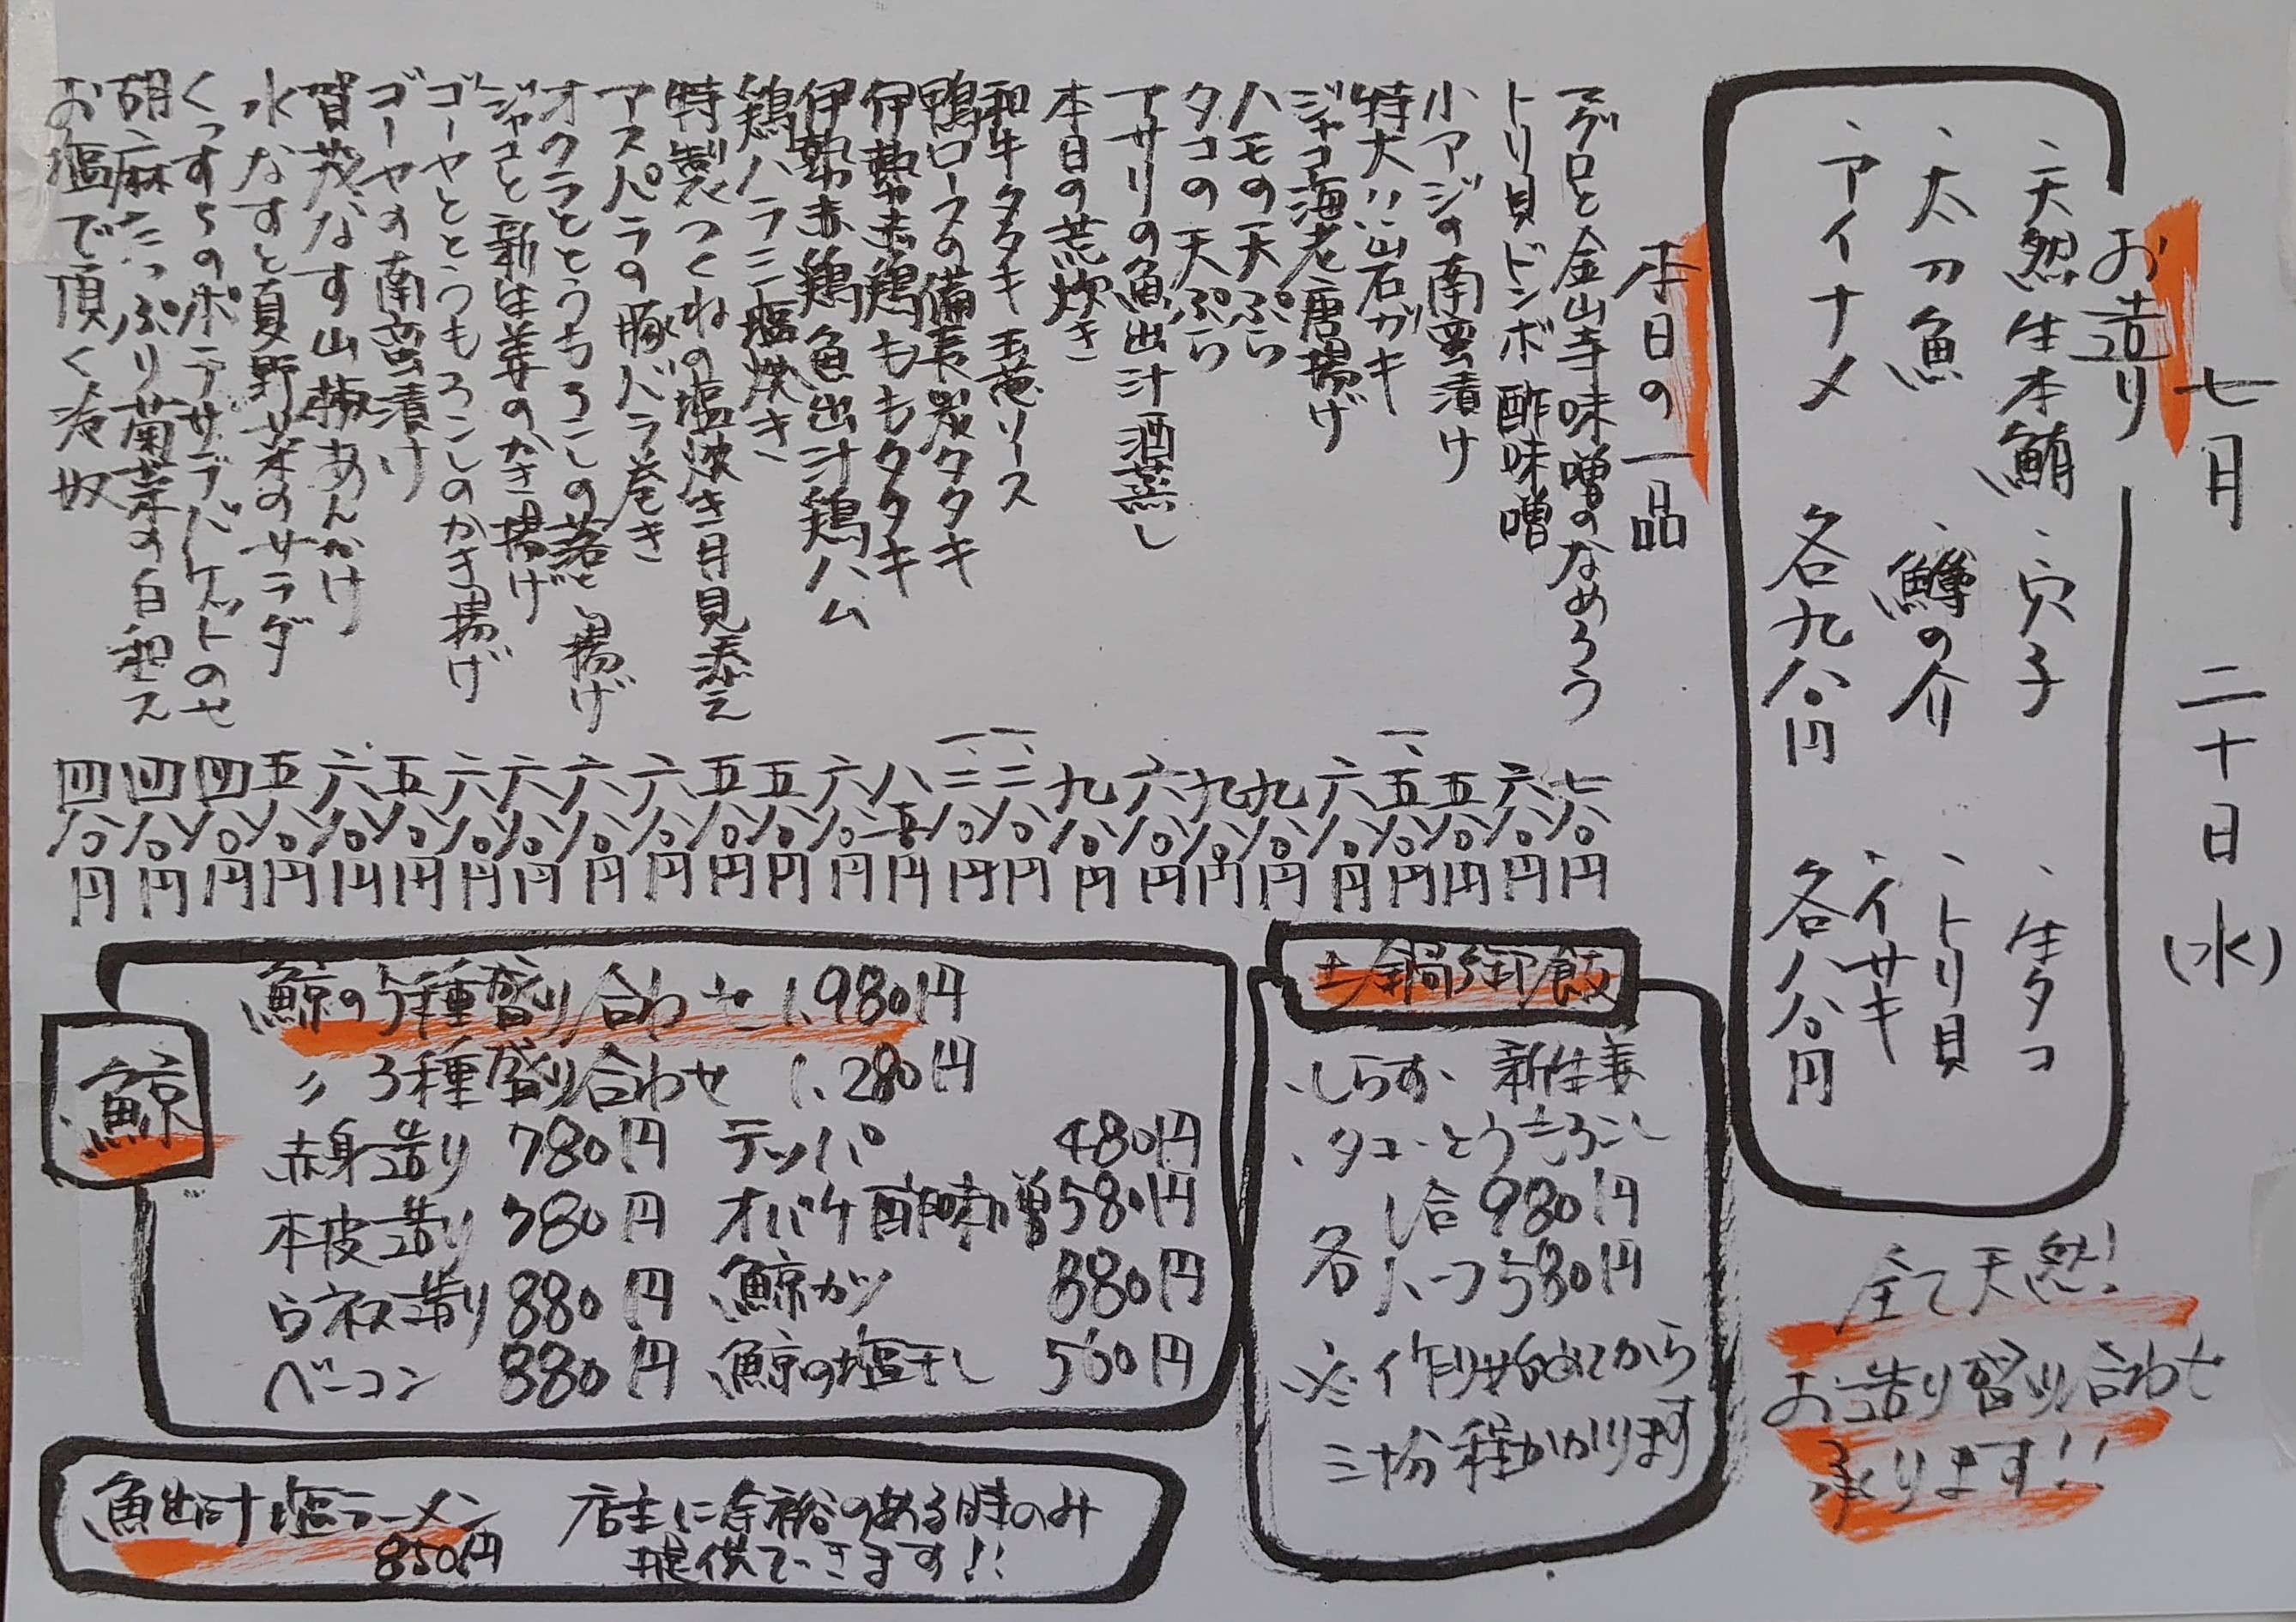 七月 二十日(水)
お造り
、天然生本鮪 、穴子 、生タコ
、太刀魚 、鱒の介 、トリ貝
、アイナメ 、イサキ
各九八〇円 各八八〇円
全て天然!
お造り盛り合わせ
承ります!!
本日の一品
マグロと金山寺味噌のなめろう 七八〇円
トリ貝ドンボ酢味噌 六八〇円
小アジの南蛮漬け 五八〇円
特大!!岩ガキ 一、五八〇円
ジャコ海老唐揚げ 六八〇円
ハモの天ぷら 九八〇円
タコの天ぷら 九八〇円
アサリの魚出汁酒蒸し 六八〇円
本日の荒炊き 九八〇円
和牛タタキ 玉葱ソース 一、二八〇円
鴨ロースの備長炭タタキ 一、二八〇円
伊勢赤鶏ももタタキ 八五〇円
伊勢赤鶏 魚出汁鶏ハム 六八〇円
鶏ハラミ塩焼き 五八〇円
特製つくねの塩焼き 月見添え 五八〇円
アスパラの豚バラ巻き 六八〇円
オクラととうもろこしの落とし揚げ 六八〇円
ジャコと新生姜のかき揚げ 六八〇円
ゴーヤととうもろこしのかき揚げ 六八〇円
ゴーヤの南蛮漬け 五八〇円
賀茂なす山椒あんかけ 六八〇円
水なすと夏野菜のサラダ 五八〇円
くつすらのポテサラ バケットのせ 四八〇円
胡麻たっぷり菊菜の白和え 四八〇円
お塩で頂く冷奴 四八〇円
土鍋御飯
、しらす、新生姜
、タコ、とうもろこし
各
一合 980円
ハーフ 580円
※作り始めてから
三十分程かかります
鯨
鯨の5種盛り合わせ 1,980円
〃 3種盛り合わせ 1,280円
赤身造り 780円 テッパ 480円
本皮造り 780円 オバケ酢味噌 580円
ウネス造り 880円 鯨カツ 880円
ベーコン 880円 鯨の塩干し 580円
魚出汁塩ラーメン
850円
店主に余裕のある時のみ
提供できます!!